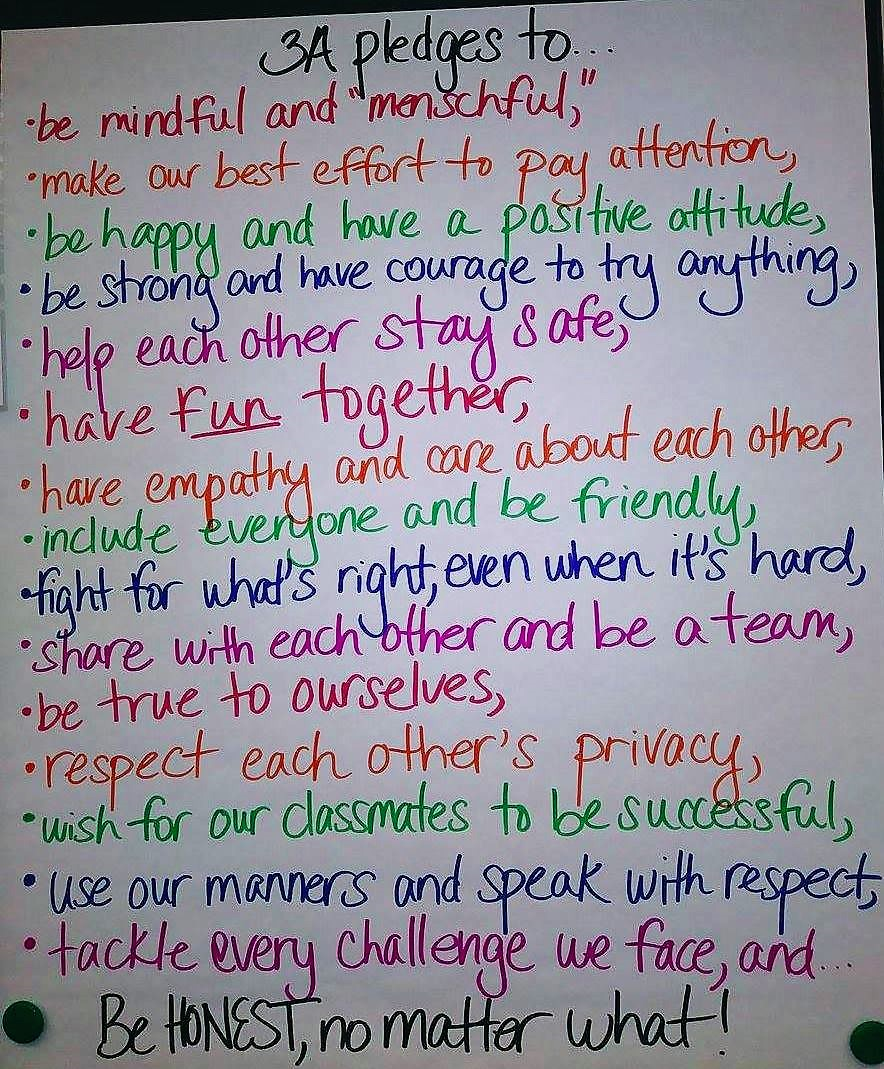 3A pledges to...
•be mindful and "menschful,"
•make our best effort to pay attention,
•be happy and have a positive attitude,
•be strong and have courage to try anything,
•help each other stay safe,
•have fun together,
•have empathy and care about each other,
•include everyone and be friendly,
•fight for what's right, even when it's hard,
•share with each other and be a team,
•be true to ourselves,
•respect each other's privacy,
•wish for our classmates to be successful,
•use our manners and speak with respect,
•tackle every challenge we face, and...
Be HONEST, no matter what!